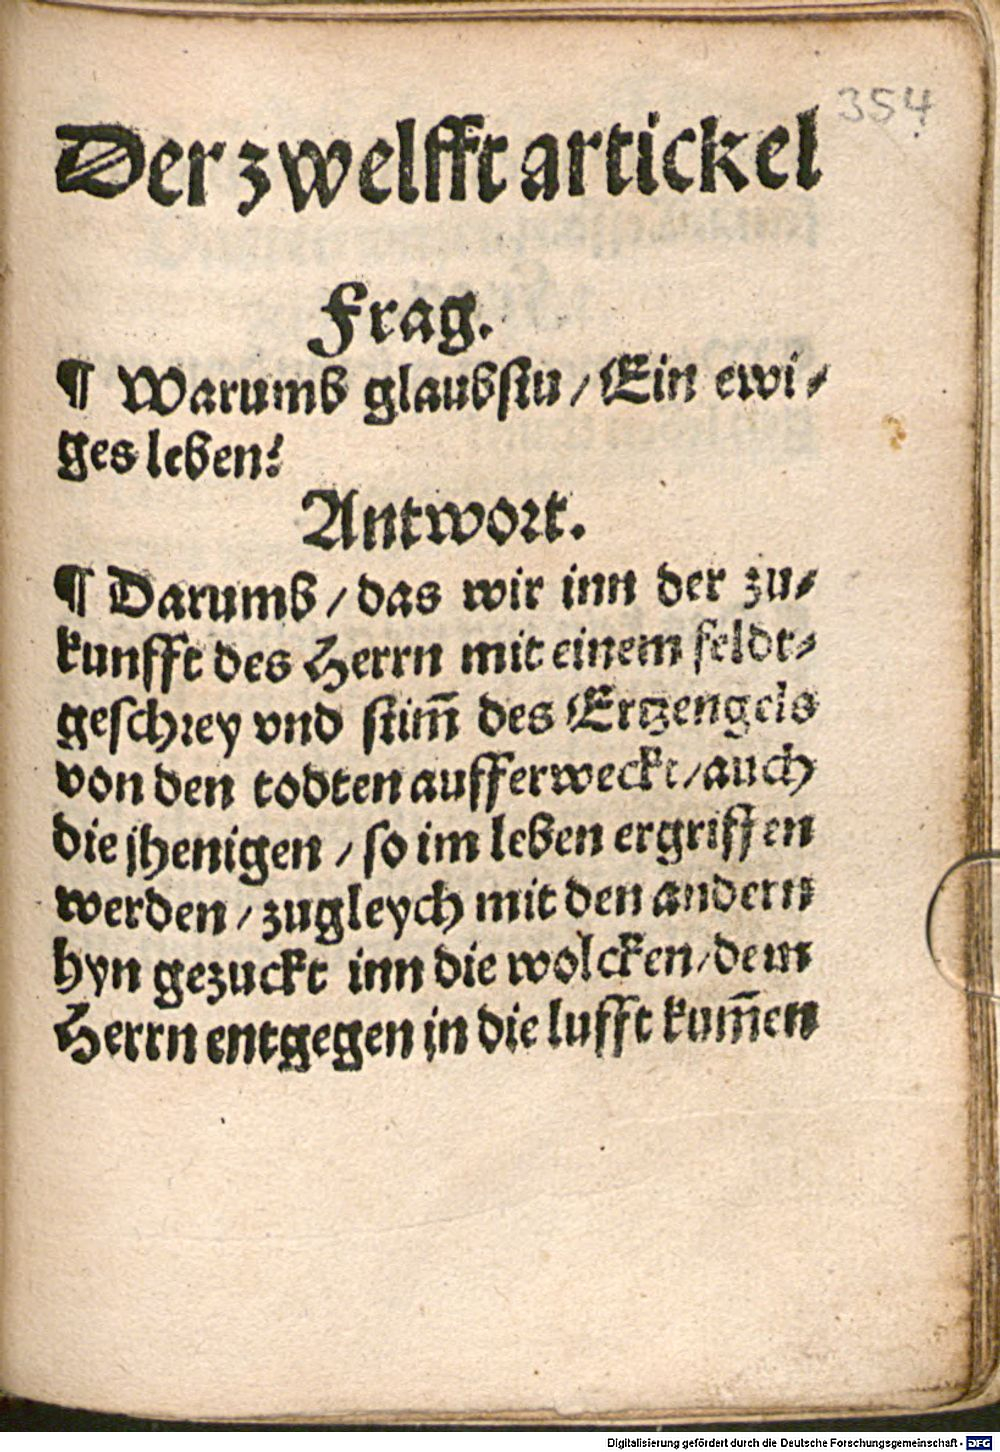 354
Der zwelfft artickel
Frag.
¶ Warumb glaubstu / Ein ewi⸗
ges leben?
Antwort.
¶ Darumb / das wir inn der zu⸗
kunfft des Herrn mit einem feldt⸗
geschrey vnd stim̃ des Ertzengels
von den todten aufferweckt / auch
die jhenigen / so im leben ergriffen
werden / zugleych mit den andern
hyn gezuckt inn die wolcken / dem
Herrn entgegen in die lufft kum̃en
Digitalisierung gefördert durch die Deutsche Forschungsgemeinschaft - DFG